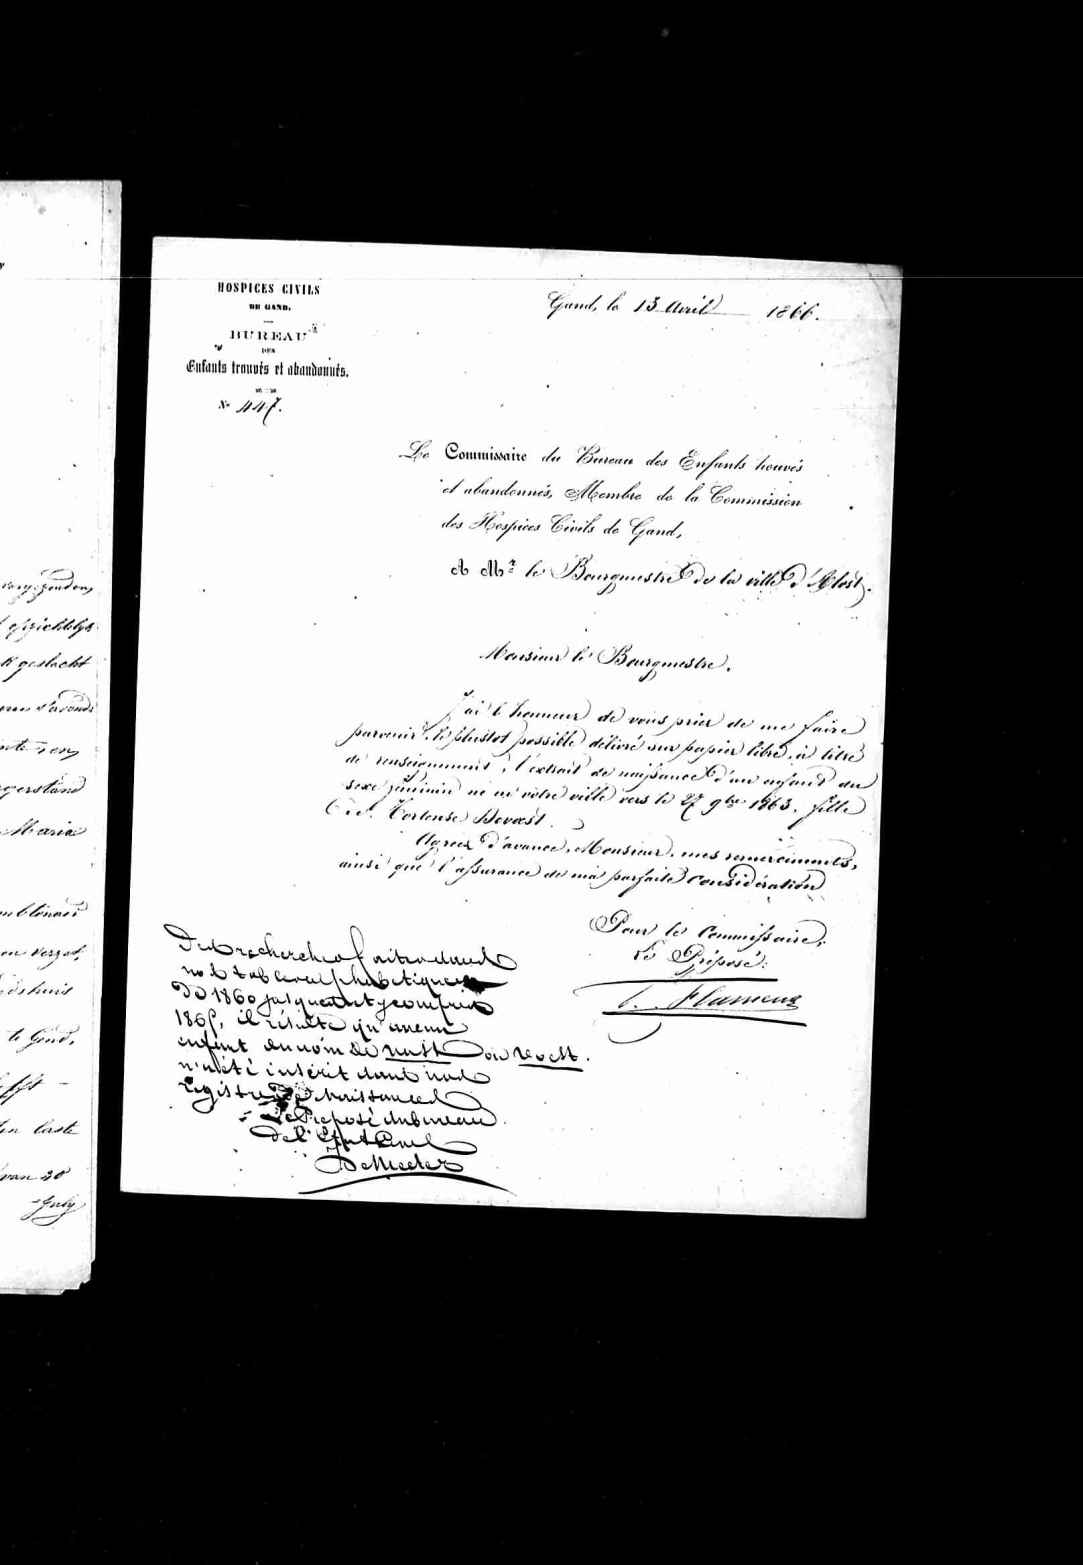 HOSPICES CIVILS
DE GAND.
BUREAU
DES
Enfants trouvés et abandonnés.
N° 447.
Gand, le 13 Avril 1866.
Le Commissaire du Bureau des Enfants trouvés
et abandonnés, Membre de la Commission
des Hospices Civils de Gand,
A Mr le Bourgmestre de la ville d'Alost.
Monsieur le Bourgmestre.
J'ai l'honneur de vous prier de me faire
parvenir, le plustot possible délivré sur papier libre, à titre
de renseignement, l'extrait de naissance d'un enfant du
sexe féminin né en votre ville vers le 27 9bre 1863. fille
de Hortense Devoest.
Agréez d'avance, Monsieur, mes remerciments,
ainsi que l'assurance de ma parfaite considération
Pour le Commissaire,
Le Préposé:
Flamens
Des recherches faites dans
nos tables alphabetiques
de 1860 jusques et y compris
1865, il résulte qu'aucun
enfant du nom de ou Voest.
n'a été inscrit dans nos
registres de Naissances
Le Préposé du bureau
de l'Etat Civil
De Meeter
geslacht
s'avonds
Maria
verzet,
te Gend,
laste
van 20
July